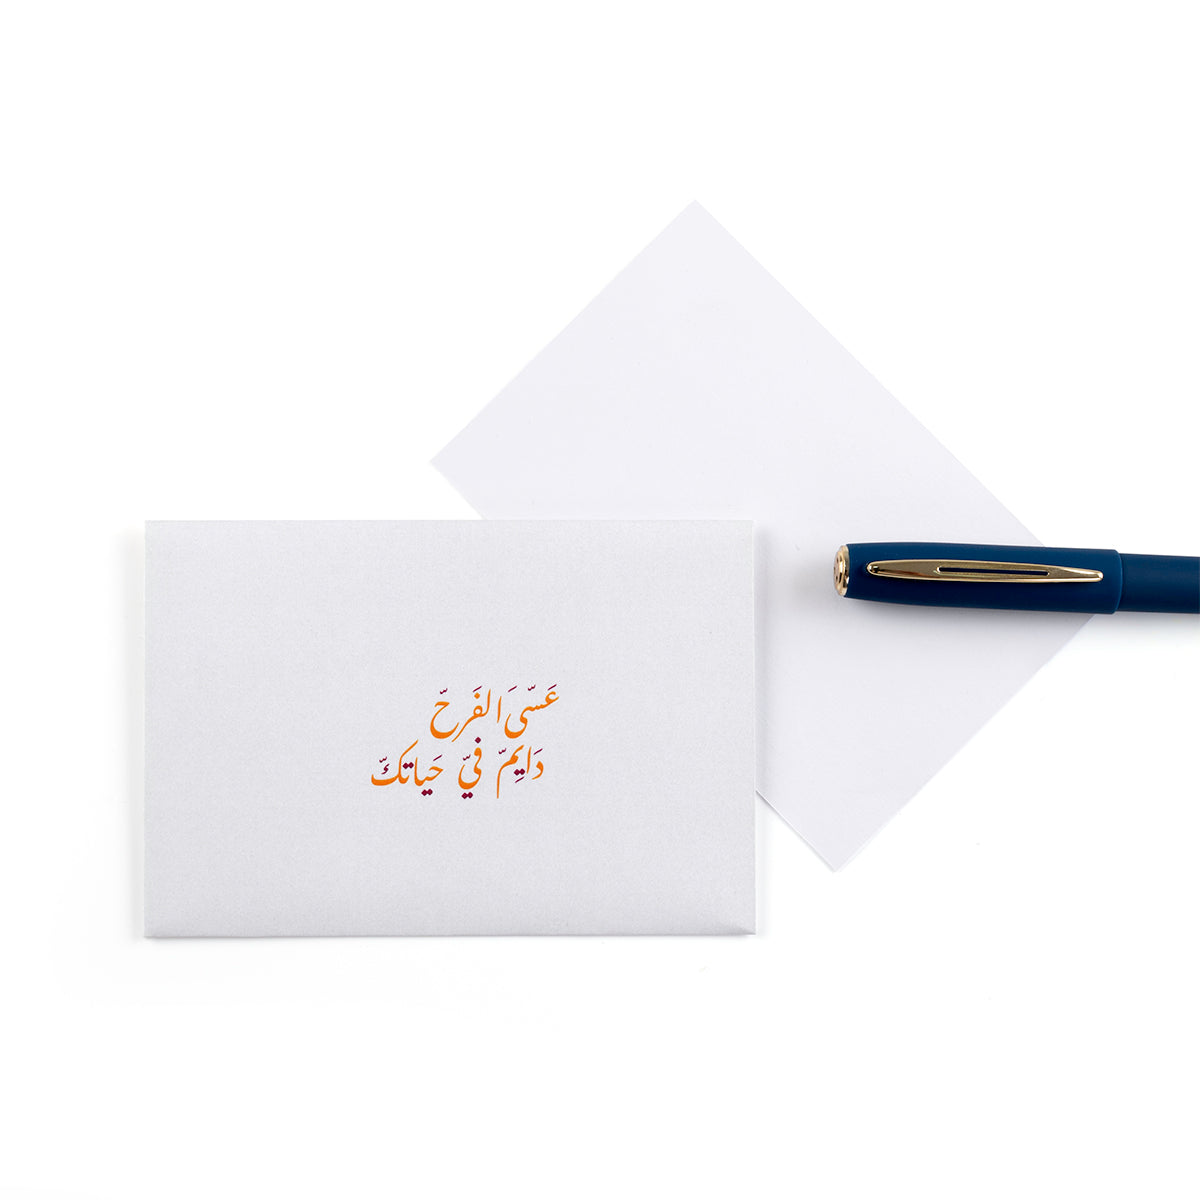 عَسّىَ الفَرحّ
دَايِمّ فيّ حَياتكّ